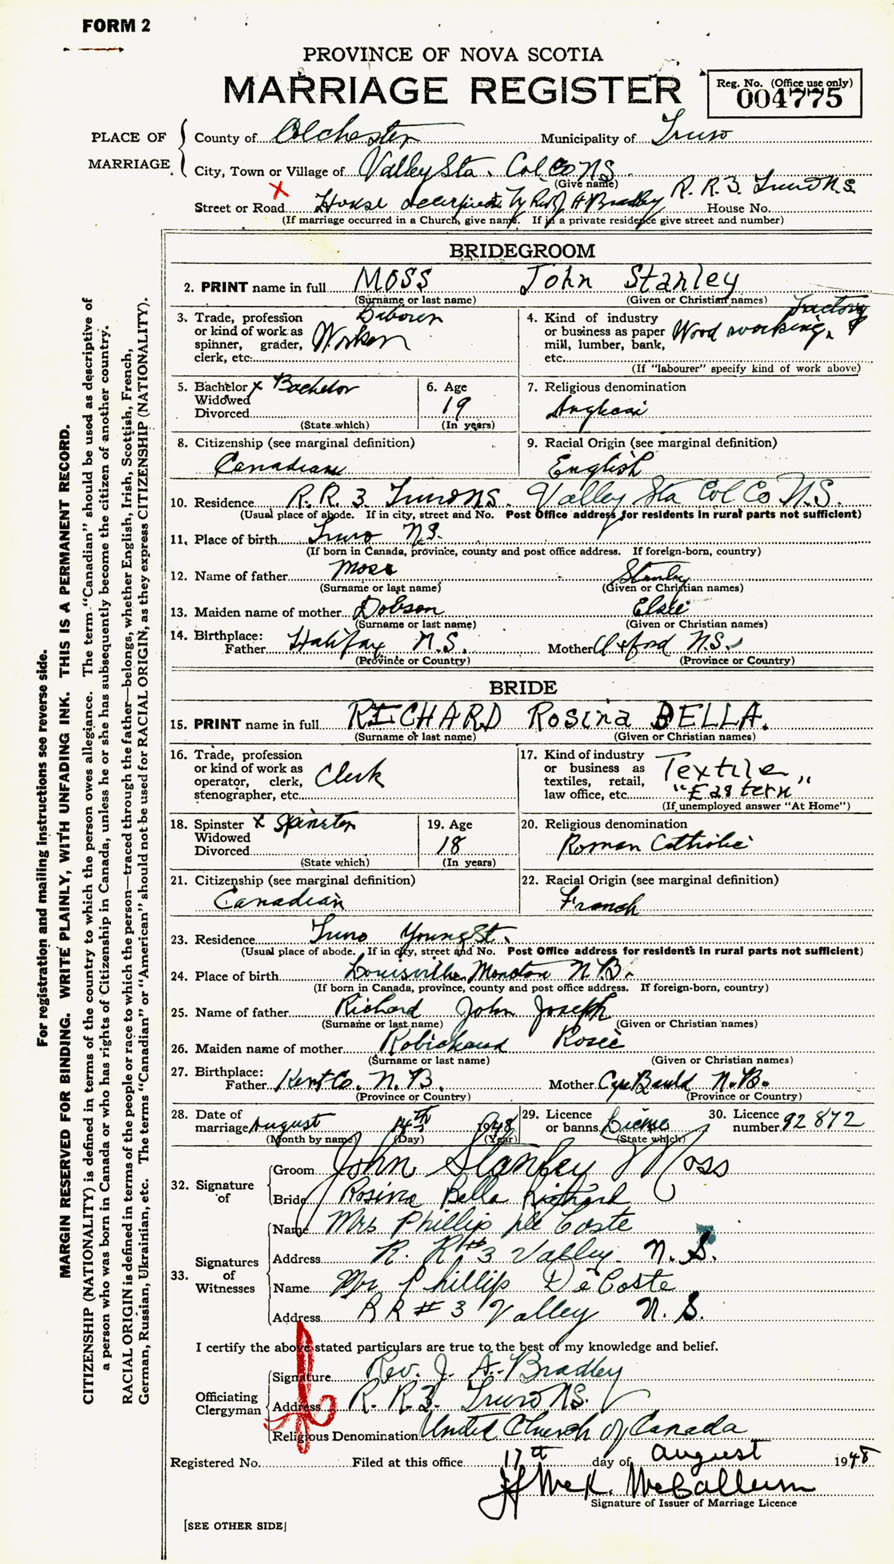 FORM 2
PROVINCE OF NOVA SCOTIA
MARRIAGE REGISTER
Reg. No. (Office use only)
004775
PLACE OF MARRIAGE
County of Colchester Municipality of Truro
City, Town or Village of Valley Sta. Col Co NS
(Give name)
Street or Road House occupied by Rev J A Bradley R. R. 3. Truro N.S. House No.
(If marriage occurred in a Church, give name. If in a private residence give street and number)
BRIDEGROOM
2. PRINT name in full MOSS John Stanley
(Surname or last name) (Given or Christian names)
3. Trade, profession or kind of work as spinner, grader, clerk, etc. Worker
4. Kind of industry or business as paper mill, lumber, bank, etc. Wood working Factory
(If "labourer" specify kind of work above)
5. Bachelor x Bachelor
Widowed
Divorced
(State which)
6. Age 19
(In years)
7. Religious denomination
Anglican
8. Citizenship (see marginal definition)
Canadian
9. Racial Origin (see marginal definition)
English
10. Residence R. R. 3 Truro NS. Valley Sta Col Co N.S.
(Usual place of abode. If in city, street and No. Post Office address for residents in rural parts not sufficient)
11. Place of birth Truro N.S.
(If born in Canada, province, county and post office address. If foreign-born, country)
12. Name of father Moss Stanley
(Surname or last name) (Given or Christian names)
13. Maiden name of mother Dobson Elsie
(Surname or last name) (Given or Christian names)
14. Birthplace:
Father Halifax N.S. Mother Oxford N.S.
(Province or Country) (Province or Country)
BRIDE
15. PRINT name in full RICHARD Rosina BELLA.
(Surname or last name) (Given or Christian names)
16. Trade, profession or kind of work as operator, clerk, stenographer, etc. Clerk
17. Kind of industry or business as textiles, retail, law office, etc. Textile "Eastern"
(If unemployed answer "At Home")
18. Spinster x Spinster
Widowed
Divorced
(State which)
19. Age
18
(In years)
20. Religious denomination
Roman Catholic
21. Citizenship (see marginal definition)
Canadian
22. Racial Origin (see marginal definition)
French
23. Residence Truro Young St.
(Usual place of abode. If in city, street and No. Post Office address for residents in rural parts not sufficient)
24. Place of birth Lewisville Moncton N.B.
(If born in Canada, province, county and post office address. If foreign-born, country)
25. Name of father Richard John Joseph
(Surname or last name) (Given or Christian names)
26. Maiden name of mother Robichaud Rosie
(Surname or last name) (Given or Christian names)
27. Birthplace:
Father Kent Co. N.B. Mother Cape Bauld N.B.
(Province or Country) (Province or Country)
28. Date of marriage August 14th 1948
(Month by name) (Day) (Year)
29. Licence or banns License
(State which)
30. Licence number 92872
32. Signature of
Groom John Stanley Moss
Bride Rosina Bella Richard
33. Signatures of Witnesses
Name Mrs Phillip De Coste
Address R. R #3 Valley N. S.
Name Mr. Phillip De Coste
Address R R # 3 Valley N. S.
I certify the above stated particulars are true to the best of my knowledge and belief.
Officiating Clergyman
Signature Rev. J. A. Bradley
Address R. R. 3. Truro NS.
Religious Denomination United Church of Canada
Registered No. Filed at this office 17th day of August 1948
McCallum
Signature of Issuer of Marriage Licence
[SEE OTHER SIDE]
For registration and mailing instructions see reverse side.
MARGIN RESERVED FOR BINDING. WRITE PLAINLY, WITH UNFADING INK. THIS IS A PERMANENT RECORD.
CITIZENSHIP (NATIONALITY) is defined in terms of the country to which the person owes allegiance. The term "Canadian" should be used as descriptive of
a person who was born in Canada or who has rights of Citizenship in Canada, unless he or she has subsequently become the citizen of another country.
RACIAL ORIGIN is defined in terms of the people or race to which the person—traced through the father—belongs, whether English, Irish, Scottish, French,
German, Russian, Ukrainian, etc. The terms "Canadian" or "American" should not be used for RACIAL ORIGIN, as they express CITIZENSHIP (NATIONALITY).